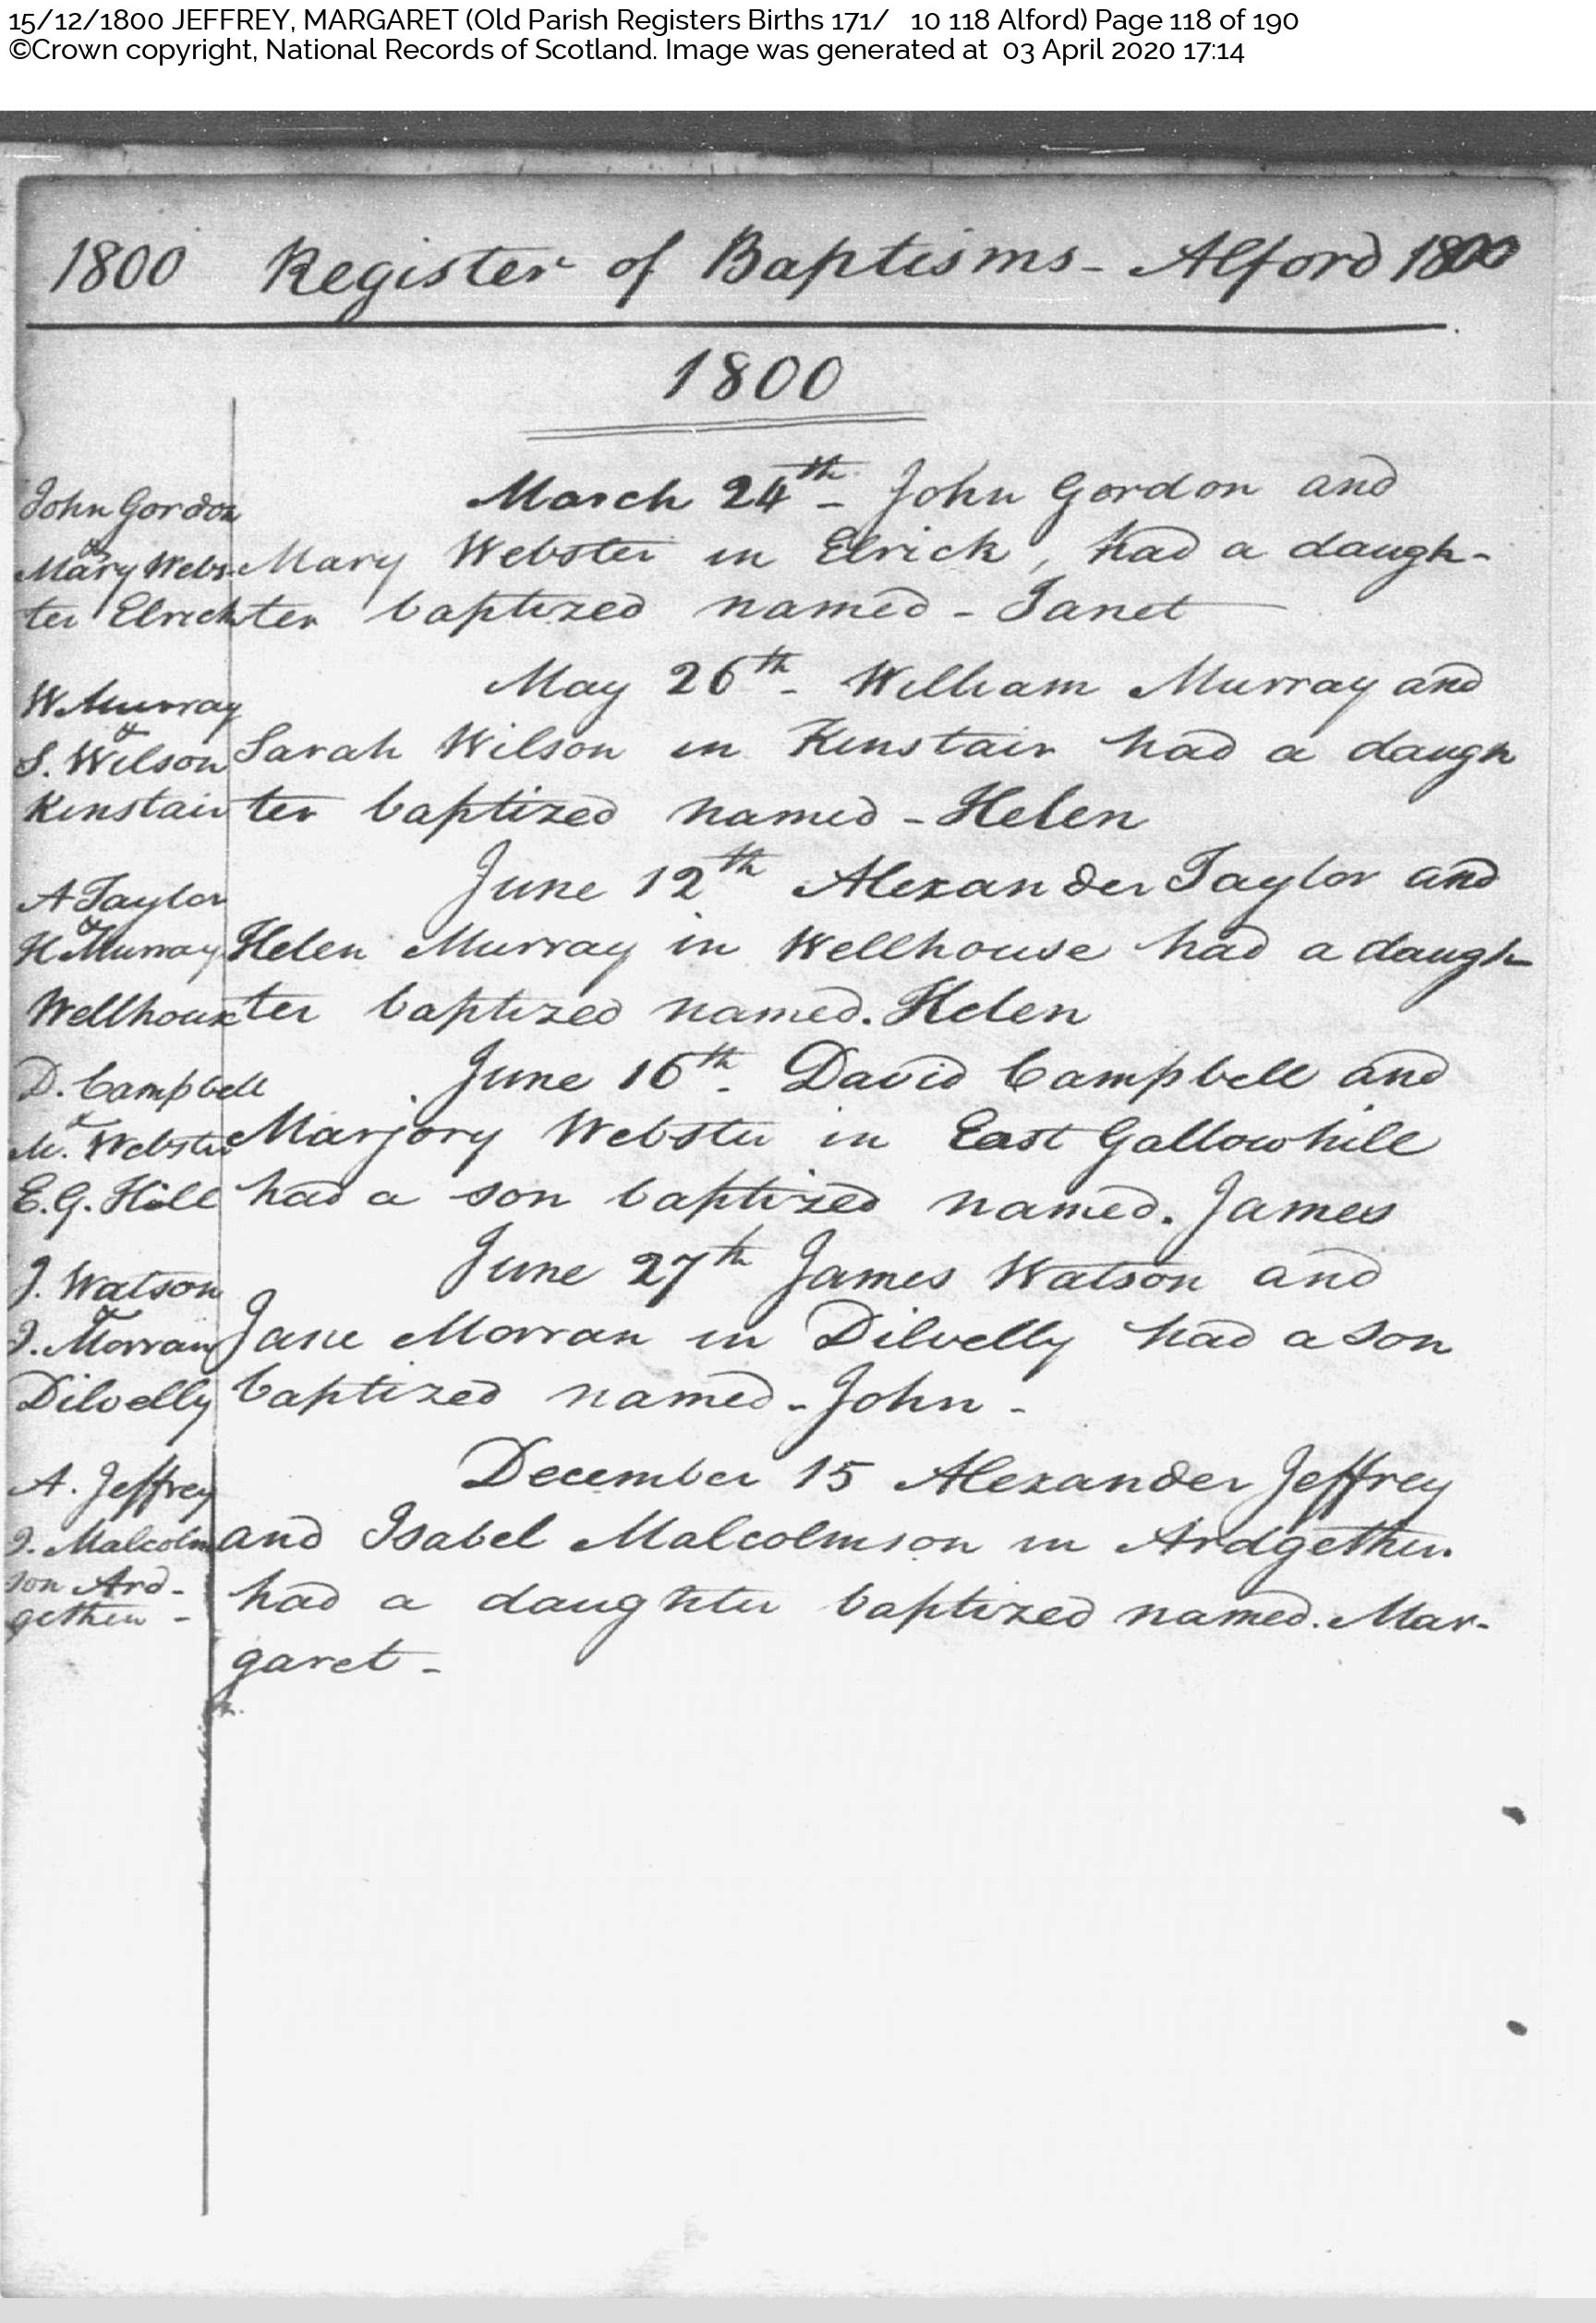 15/12/1800 JEFFREY, MARGARET (Old Parish Registers Births 171/ 10 118 Alford) Page 118 of 190
©Crown copyright, National Records of Scotland. Image was generated at 03 April 2020 17:14
1800 Register of Baptisms - Alford 1800
1800
John Gordon
&
Mary Webs-
ter Elrick
March 24th - John Gordon and
Mary Webster in Elrick, had a daugh-
ter baptized named - Janet
W. Murray
&
S. Wilson
Kinstair
May 26th - William Murray and
Sarah Wilson in Kinstair had a daugh
ter baptized named - Helen
A Taylor
&
H Murray
Wellhouse
June 12th Alexander Taylor and
Helen Murray in Wellhouse had a daugh-
ter baptized named. Helen
D. Campbell
&
M. Webster
E. G. Hill
June 16th - David Campbell and
Marjory Webster in East Gallowhill
had a son baptized named. James
J. Watson
&
J. Morran
Dilvelly
June 27th James Watson and
Jane Morran in Dilvelly had a son
baptized named - John -
A. Jeffrey
I. Malcolm
son Ard-
gethen -
December 15 Alexander Jeffrey
and Isabel Malcolmson in Ardgethen.
had a daughter baptized named. Mar-
garet -